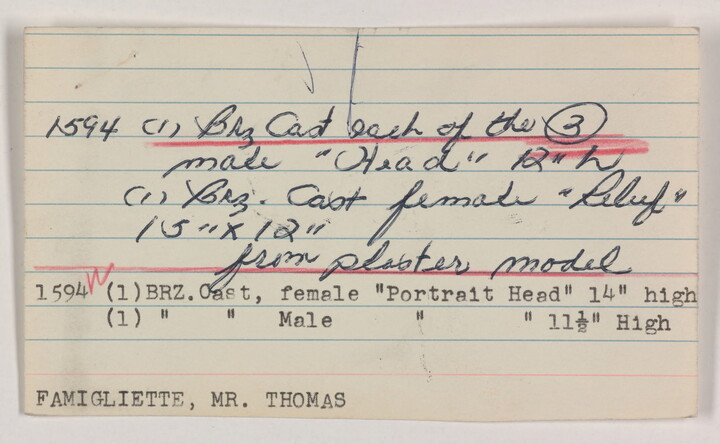 1594 (1) Brz Cast each of the 3
male "Head" 12" h
(1) Brz. Cast female "Relief"
15" x 12"
from plaster model
1594 (1) BRZ. Cast, female "Portrait Head" 14" high
(1) " " Male " " 11½" High
FAMIGLIETTE, MR. THOMAS